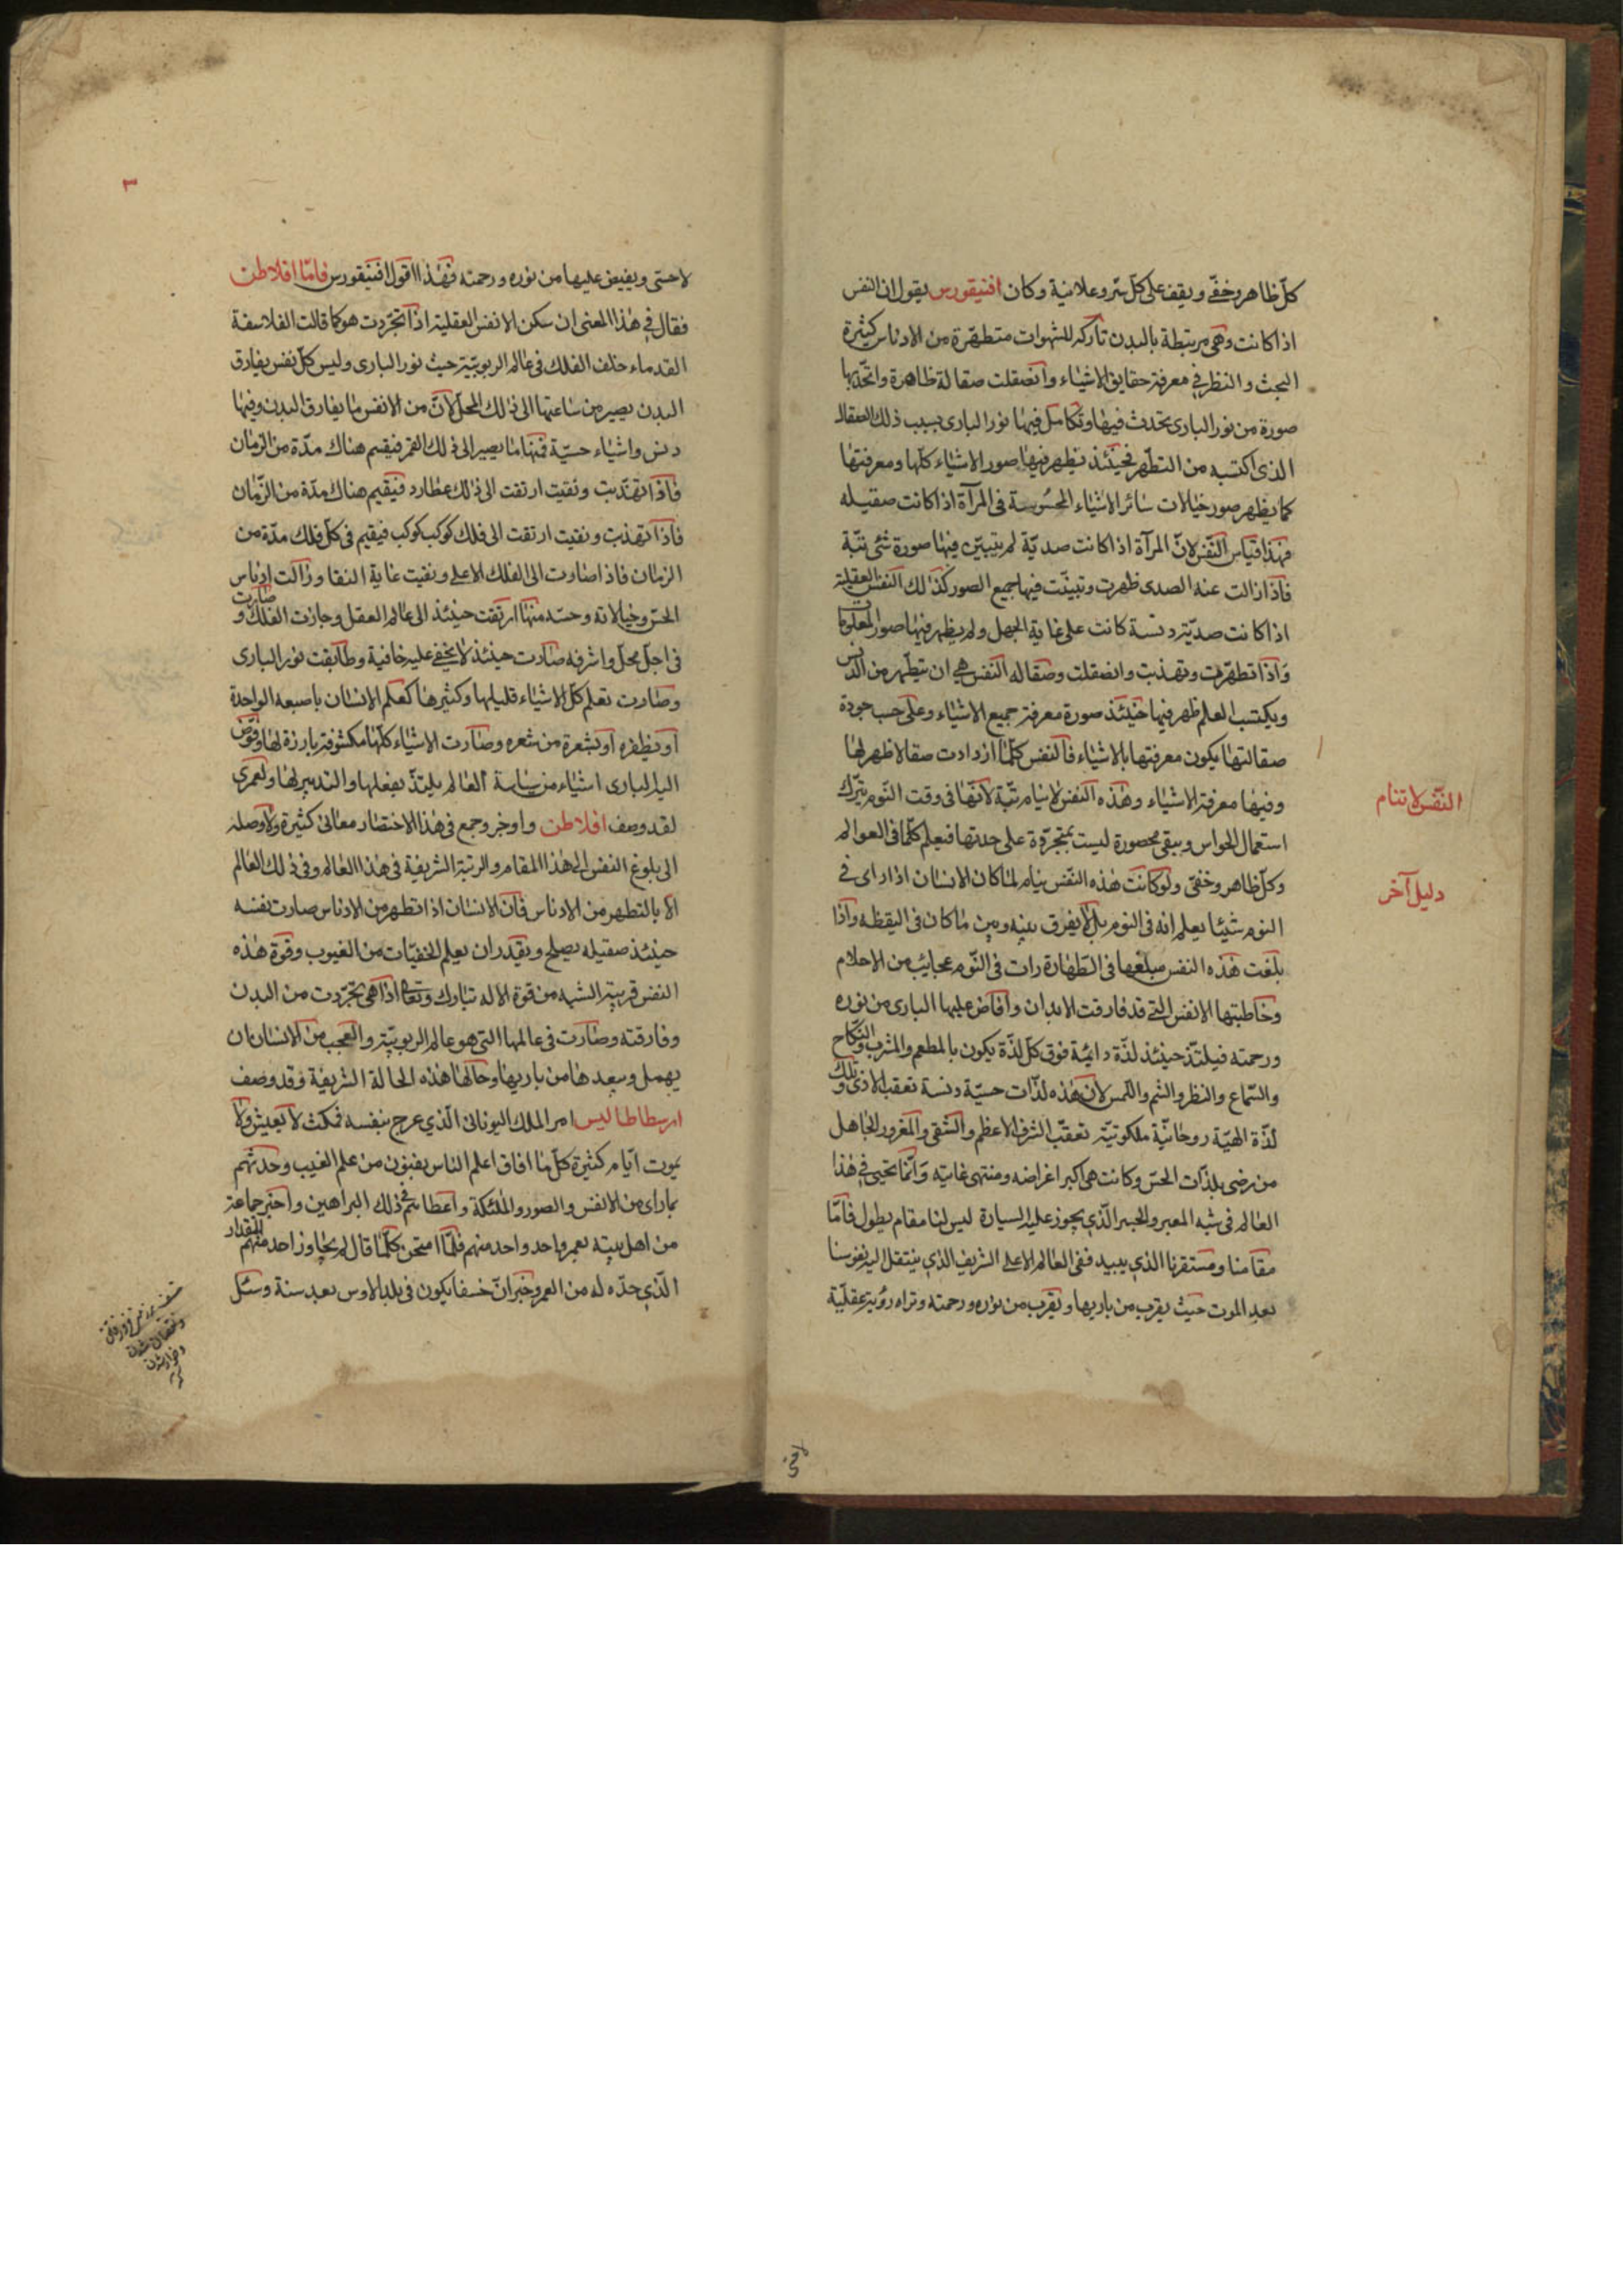 كلّ ظاهر وخفّي ويقف على كلّ سّر وعلانية وكان افنيقورس يقول ان النفس
اذا كانت وهي مرتبطة بالبدن تاركه للشهوات متطهّرة من الادناس كثيرة
البحث والنظر في معرفة حقايق الاشياء وانصقلت صقالة ظاهرة واتّحد بها
صورة من نور البارى يحدث فيها وتكامل فيها نور البارى بسبب ذلك الصقال
الذى اكتسبه من التطّهر فحينئذ يظهر فيها صور الاشياء كلّها ومعرفتها
كما يظهر صور خيالات سائر الاشياء المحسُوسة فى المرآة اذا كانت صقيله
فهذا قياس النّفس لانّ المرآة اذا كانت صديّة لم يتبيّن فيها صورة شئ بتّة
فاذا زالت عنه الصدى ظهرت وتبيّنت فيها جميع الصور كذلك النفس العقلية
اذا كانت صديّة دنسة كانت على غاية الجهل ولم يظهر فيها صور المعلومات
وَاذا تطهّرت وتهذبت وانصقلت وصقاله النفس هي ان يتطّهر من الدنس
ويكتسب العلم ظهر فيها حينئذ صورة معرفة جميع الاشياء وعلى حسب جودة
صقالتها يكون معرفتها بالاشياء فالنفس كلّما ازدادت صقالا ظهر لها
وفيها معرفة الاشياء وهذه النفس لا ينام بتّة لانّها فى وقت النّوم يترك
استعمال الحواس ويبقى محصورة ليست بمتجرّدة على حدتها فيعلم كلّما فى العوالم
وكلّ ظاهر وخفىّ ولو كانت هذه النّفس ينام لما كان الانسان اذا راى في
النوم شيئا يعلم انه فى النوم بل لا يفرق بينه وبين ما كان فى اليقظه واذا
بلغت هذه النفس مبلغها فى الطّهارة رات فى النّوم عجايب من الاحلام
وخاطبتها الانفس التي قد فارقت الابدان وافاض عليها البارى من نوره
ورحمته فيلتذّ حينئذ لذّة دائمة فوق كلّ لذّة يكون بالمطعم والمشرب والنكاح
والسّماع والنظر والشم واللمس لان هذه لذّات حسيّة دنسة تعقب الاذى وتلك
لذّة الهيّة روحانيّة ملكوتيّة تعقّب الشرف الاعظم والشقي والمغرور الجاهل
من رضى بلذات الحسّ وكانت هى اكبر اغراضه ومنتهى غايته وَانّما نحيى في هذا
العالم فى شبه المعبر والجسر الّذي يجوز عليه السيارة ليس لنا مقام يطول فامّا
مقامنا ومستقرنا الذي ففى العالم الاعلى الشريف الذي ينتقل اليه نفوسنا
بعد الموت حيث يقرب من باريها ويقرب من نوره ورحمته وتراه رؤية عقليّة
النّفس لا تنام
دليل آخر
٣
لا حسّى ويفيض عليها من نوره ورحمته فهذا قول افنيقورس فامّا افلاطن
فقال في هذا المعنى ان سكن الانفس العقلية اذا تجرّدت هو كما قالت الفلاسفة
القدماء خلف الفلك فى عالم الربوبيّة حيث نور البارى وليس كلّ نفس يفارق
البدن يصير من ساعتها الى ذلك المحل لانّ من الانفس ما يفارق البدن وفيها
دنس واشياء حسيّة فمنها ما يصير الى فلك القمر فيقيم هناك مدّة من الزمان
فاذا تهذّبت ونقيت ارتقت الى فلك عطارد فيقيم هناك مدّة من الزّمان
فاذا تهذبت ونقيت ارتقت الى فلك كوكب كوكب فيقيم فى كلّ فلك مدّة من
الزمان فاذا صارت الى الفلك الاعلى ونقيت غاية النقا وزالت ادناس
الحسّ وخيالاته وحسّه منها ارتقت حينئذ الى عالم العقل وجازت الفلك وصارت
فى اجلّ محلّ واشرفه صارت حينئذ لا يخفي عليه خافية وطابقت نور البارى
وصارت تعلم كلّ الاشياء قليلها وكثيرها كعلم الانسان باصبعه الواحدة
او بظفره او بشعرة من شعره وصارت الاشياء كلّها مكشوفة بارزة لها وفوّض
اليه البارى اشياء من سياسة العالم يلتذّ بفعلها والتدبير لها ولعمرى
لقد وصف افلاطن واوجز وجمع فى هذا الاختصار معانى كثيرة ولا وصله
الى بلوغ النفس الى هذا المقام والرتبة الشريفة فى هذا العالم وفى ذلك العالم
الّا بالتطهر من الادناس فانّ الانسان اذا تطهر من الادناس صارت نفسه
حينئذ صقيله يصلح ويقدر ان يعلم الخفيّات من الغيوب وقوة هذه
النفس قريبة الشبه من قوة الاله تبارك وتعالى اذا هى تجرّدت من البدن
وفارقته وصارت فى عالمها التي هو عالم الربوبيّة والعجب من الانسان ان
يهمل وبعدها من باريها وحالها هذه الحالة الشريفة وقد وصف
ارسطاطاليس امر الملك اليونانى الّذي عرج بنفسه فمكث لا يعيش ولا
يموت ايّام كثيرة كلّما افاق اعلم الناس بفنون من علم الغيب وحدثهم
بما راى من الانفس والصور والملئكة واعطاهم فى ذلك البراهين واخبر جماعة
من اهل بيته بعمر واحد واحد منهم فلمّا امتحن كلّما قال لم يجاوز احد منهم المقدار
الّذي حدّه له من العمر وخبر انّ خسفا يكون فى بلد الاوس بعد سنة وسئل